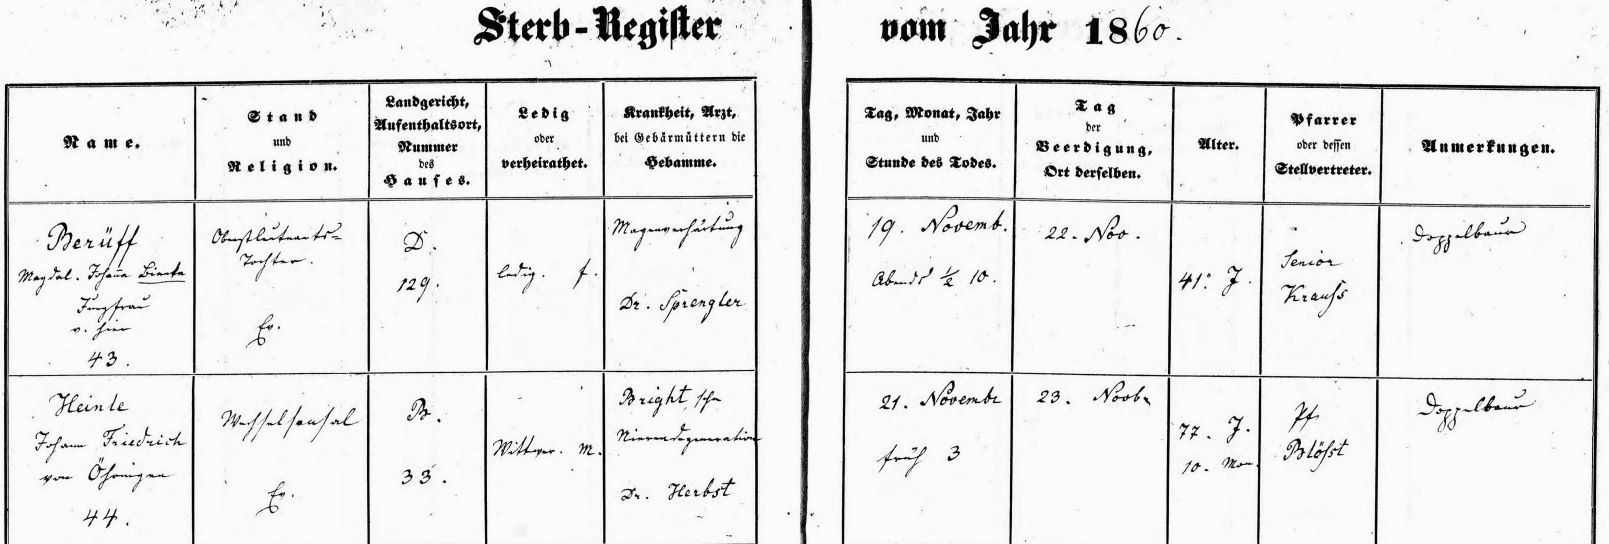 Sterb-Register vom Jahr 1860.
Name.
Stand
und
Religion.
Landgericht,
Aufenthaltsort,
Nummer
des
Hauses.
Ledig
oder
verheirathet.
Krankheit, Arzt,
bei Gebärmüttern die
Hebamme.
Tag, Monat, Jahr
und
Stunde des Todes.
Tag
der
Beerdigung,
Ort derselben.
Alter.
Pfarrer
oder dessen
Stellvertreter.
Anmerkungen.
Berüff
Magdal. Johana
Jungfrau
v. hier
43.
Oberstlieutenants-
Tochter.
Ev.
D.
129.
ledig. f.
Magenverhärtung
Dr. Sprengler
19. Novemb.
Abends ½ 10.
22. Nov.
41. J.
Senior
Krauß
Doppelbaur
Heinle
Johann Friedrich
von Öhringen
44.
Wechselsensal
Ev.
B.
33.
Wittwer. M.
Bright'sche
Nierendegeneration
Dr. Herbst
21. Novembr
früh 3
23. Novb.
77. J.
10. Mon.
Pf
Blößt
Doppelbaur